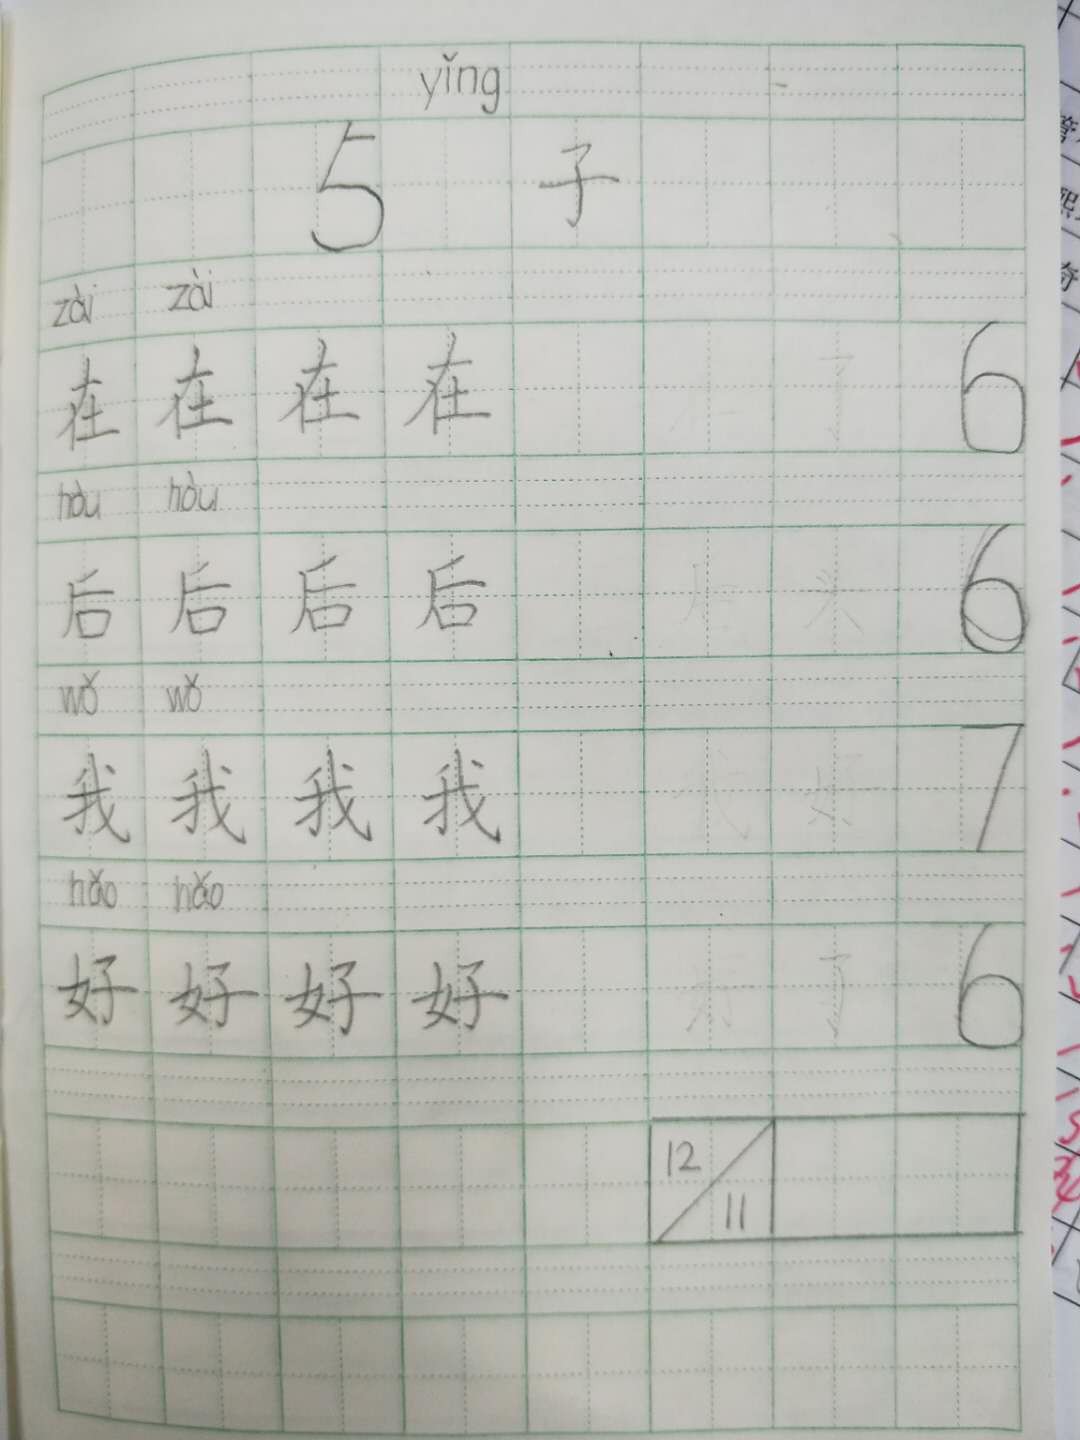 yǐng
5 子
zài zài
在 在 在 在 了 6
hòu hòu
后 后 后 后 后 头 6
wǒ wǒ
我 我 我 我 我 好 7
hǎo hǎo
好 好 好 好 好 了 6
12 11